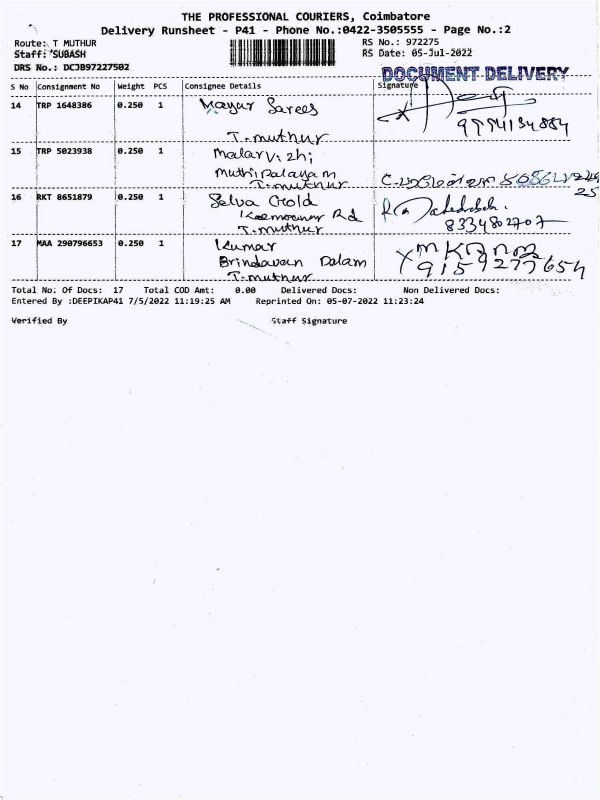 THE PROFESSIONAL COURIERS, Coimbatore
Delivery Runsheet - P41 - Phone No.:0422-3505555 - Page No.:2
Route: T MUTHUR RS No.: 972275
Staff: SUBASH RS Date: 05-Jul-2022
DRS No.: DCJB97227502
DOCUMENT DELIVERY
S No Consignment No Weight PCS Consignee Details Signature
14 TRP 1648386 0.250 1 Mayur Sarees
T.muthur
15 TRP 5023938 0.250 1 malarvizhi
muthipalayam
T.muthur
25
16 RKT 8651879 0.250 1 Selva Gold
Rd
T.muthur 8334802707
17 MAA 290796653 0.250 1 Kumar
Brindavan 9159277654
T.muthur
Total No. Of Docs: 17 Total COD Amt: 0.00 Delivered Docs: Non Delivered Docs:
Entered By :DEEPIKAP41 7/5/2022 11:19:25 AM Reprinted On: 05-07-2022 11:23:24
Verified By Staff Signature